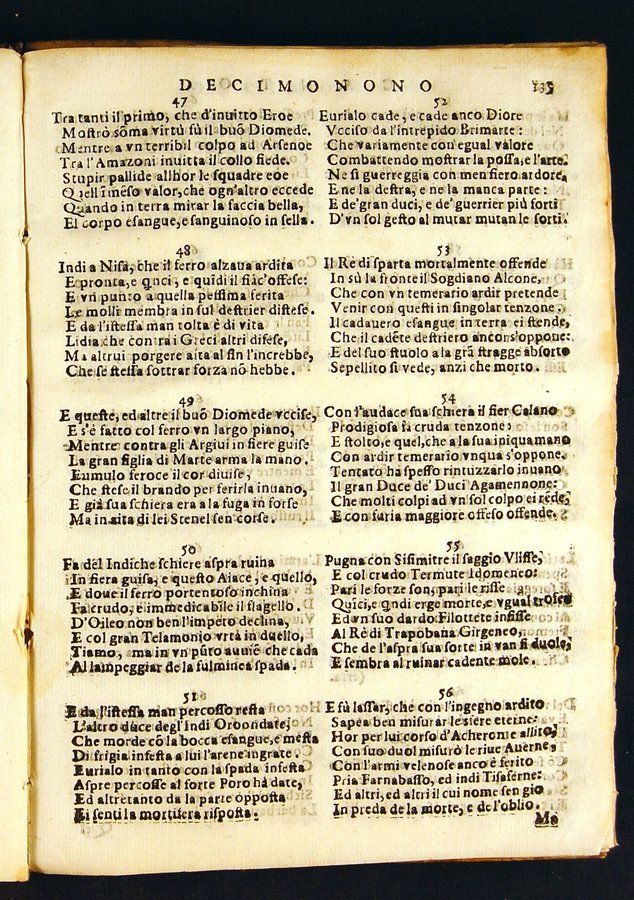 DECIMONONO 135
47
Tra tanti il primo, che d'inuitto Eroe
Mostrò sõma virtù fù il buõ Diomede.
Mentre a vn terribil colpo ad Arsenoe
Tra l'Amazoni inuitta il collo fiede.
Stupir pallide allhor le squadre eoe
Quell'imẽso valor, che ogn'altro eccede
Quando in terra mirar la faccia bella,
El corpo esangue, e sanguinoso in sella.
48
Indi a Nisa, che il ferro alzaua ardita
E pronta, e qnci, e quĩdi il fiãc'offese:
E vn punto a quella pessima ferita
Le molli membra in sul destrier distese.
E da l'istessa man tolta è di vita
Lidia, che contra i Greci altri difese,
Ma altrui porgere aita al fin l'increbbe,
Che se stessa sottrar forza nõ hebbe.
49
E queste, ed altre il buõ Diomede vccise,
E s'è fatto col ferro vn largo piano,
Mentre contra gli Argiui in fiere guise
La gran figlia di Marte arma la mano.
Eumulo feroce il cor diuise,
Che stese il brando per ferirla inuano,
E già sua schiera era a la fuga in forse
Ma in aita di lei Stenel sen corse.
50
Fa del Indiche schiere aspra ruina
In fiera guisa, e questo Aiace, e quello,
E doue il ferro portentoso inchina
Fa crudo, e immedicabile il flagello.
D'Oileo non ben l'impeto declina,
E col gran Telamonio vrta in duello,
Tiamo, ma in vn pũto auuiẽ che cada
Al lampeggiar de la fulminea spada.
51
E da l'istessa man percosso resta
L'altro duce degl'Indi Oroondate,
Che morde cõ la bocca esangue, e mesta
Di frigia infesta a lui l'arene ingrate.
Eurialo in tanto con la spada infesta
Aspre percosse al forte Poro hà date,
Ed altretanto da la parte opposta
Ei sentì la mortifera risposta.
52
Eurialo cade, e cade anco Diore
Vcciso da l'intrepido Brimarte:
Che variamente con egual valore
Combattendo mostrar la possa, e l'arte.
Ne si guerreggia con men fiero ardore,
E ne la destra, e ne la manca parte:
E de'gran duci, e de' guerrier più forti
D'vn sol gesto al mutar mutan le sorti.
53
Il Rè di sparta mortalmente offende
In sù la fronte il Sogdiano Alcone,
Che con vn temerario ardir pretende
Venir con questi in singolar tenzone.
Il cadauero esangue in terra ei stende,
Che il cadẽte destriero ancor s'oppone:
E del suo stuolo a la grã stragge absorto
Sepellito si vede, anzi che morto.
54
Con l'audace sua schiera il fier Calano
Prodigiosa fa cruda tenzone:
E stolto, e quel, che a la sua iniqua mano
Con ardir temerario vnqua s'oppone.
Tentato ha spesso rintuzzarlo inuano
Il gran Duce de' Duci Agamennone:
Che molti colpi ad vn sol colpo ei rède,
E con furia maggiore offeso offende.
55
Pugna con Sisimitre il saggio Vlisse,
E col crudo Termute Idomeneo:
Pari le forze son, pari le risse
Quici, e qndi erge morte, e vgual trofeo
Ed vn suo dardo Filottete infisse
Al Rè di Trapobana Girgeneo,
Che de l'aspra sua sorte in van si duole,
E sembra al ruinar cadente mole.
56
E fù lassar, che con l'ingegno ardito
Sapea ben misurar le sfere eterne:
Hor per lui corso d'Acheronte al lito,
Con suo duol misurò le riue Auerne,
Con l'armi velenose anco è ferito
Pria Farnabasso, ed indi Tisaferne:
Ed altri, ed altri il cui nome sen gio
In preda de la morte, e de l'oblio.
Me